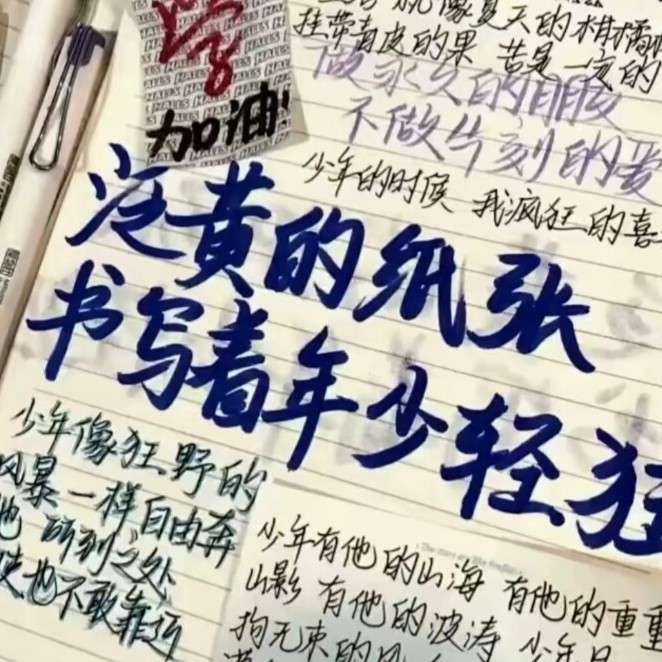 就像夏天的柑橘
挂带青皮的果 苦是一定的
做永久的朋友
不做片刻的
HALLS
加油!
少年的时候 我疯狂的喜
泛黄的纸张
书写着年少轻狂
少年像狂野的
风暴一样自由奔
他 所到之处
也不敢靠近
少年有他的山海 有他的重重
山影 有他的波涛 少年
拘无束的风